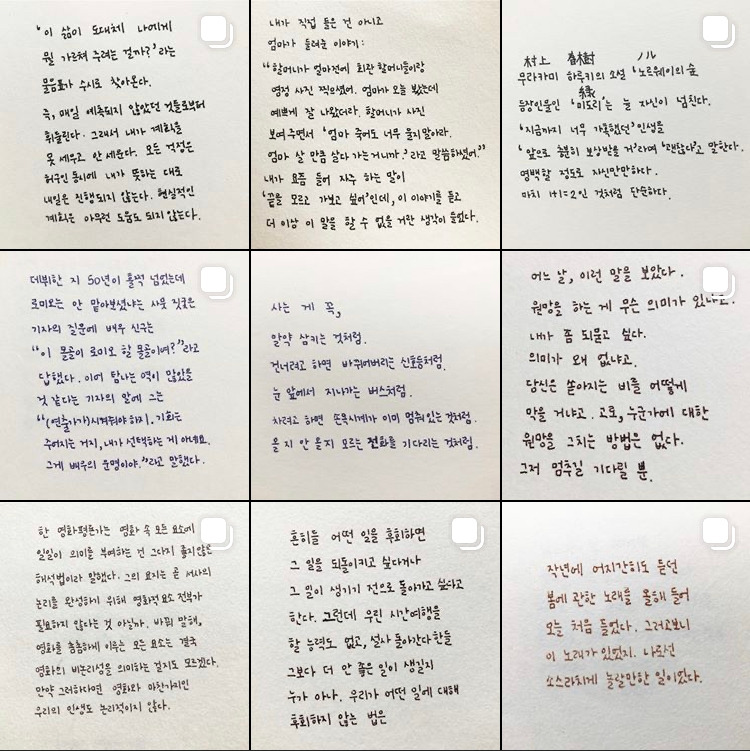 '이 삶이 도대체 나에게
뭘 가르쳐 주려는 걸까?'라는
물음표가 수시로 찾아온다.
즉, 매일 예측되지 않았던 것들로부터
휘둘린다. 그래서 내가 계획을
못 세우고 안 세운다. 모든 걱정은
허구인 동시에 내가 뜻하는 대로
내일은 진행되지 않는다. 현실적인
계획은 아무런 도움도 되지 않는다.
내가 직접 들은 건 아니고
엄마가 들려준 이야기:
"할머니가 얼마전에 회관 할머니들이랑
영정 사진 찍으셨어. 엄마가 오늘 봤는데
예쁘게 잘 나왔더라. 할머니가 사진
보여주면서 '엄마 죽어도 너무 울지말아라.
엄마 살 만큼 살다 가는거니까.'라고 말씀하셨어."
내가 요즘 들어 자주 하는 말이
'끝을 모르고 가보고 싶어'인데, 이 이야기를 듣고
더 이상 이 말을 할 수 없을 거란 생각이 들었다.
村上 春樹 ノル
무라카미 하루키의 소설 '노르웨이의 숲
緑
등장인물인 '미도리'는 늘 자신이 넘친다.
'지금까지 너무 가혹했던' 인생을
'앞으로 충분히 보상받을 거'라며 '괜찮다'고 말한다.
명백할 정도로 자신만만하다.
마치 1+1=2인 것처럼 단순하다.
데뷔한 지 50년이 훌쩍 넘었는데
로미오는 안 맡아보셨냐는 사뭇 짓궂은
기자의 질문에 배우 신구는
"이 몰골이 로미오 할 몰골이여?"라고
답했다. 이어 탐나는 역이 많았을
것 같다는 기자의 말에 그는
"(연출가가)시켜줘야 하지. 기회는
주어지는 거지, 내가 선택하는 게 아녜요.
그게 배우의 운명이야."라고 말했다.
사는 게 꼭,
알약 삼키는 것처럼.
건너려고 하면 바뀌어버리는 신호등처럼.
눈 앞에서 지나가는 버스처럼.
차려고 하면 손목시계가 이미 멈춰 있는 것처럼.
올 지 안 올지 모르는 전화를 기다리는 것처럼.
어느 날, 이런 말을 보았다.
원망을 하는 게 무슨 의미가 있냐고.
내가 좀 되묻고 싶다.
의미가 왜 없냐고.
당신은 쏟아지는 비를 어떻게
막을 거냐고. 고로, 누군가에 대한
원망을 그치는 방법은 없다.
그저 멈추길 기다릴 뿐.
한 영화평론가는 영화 속 모든 요소에
일일이 의미를 부여하는 건 그다지 좋지않은
해석법이라 말했다. 그의 요지는 곧 서사의
논리를 완성하기 위해 영화적 요소 전부가
필요하지 않다는 것 아닐까. 바꿔 말해,
영화를 촘촘하게 이루는 모든 요소는 결국
영화의 비논리성을 의미하는 걸지도 모르겠다.
만약 그러하다면 영화와 마찬가지인
우리의 인생도 논리적이지 않다.
흔히들 어떤 일을 후회하면
그 일을 되돌이키고 싶다거나
그 일이 생기기 전으로 돌아가고 싶다고
한다. 그런데 우린 시간여행을
할 능력도 없고, 설사 돌아간다 한들
그보다 더 안 좋은 일이 생길지
누가 아나. 우리가 어떤 일에 대해
후회하지 않는 법은
작년에 어지간히도 듣던
봄에 관한 노래를 올해 들어
오늘 처음 들었다. 그러고보니
이 노래가 있었지. 나로선
소스라치게 놀랄만한 일이었다.